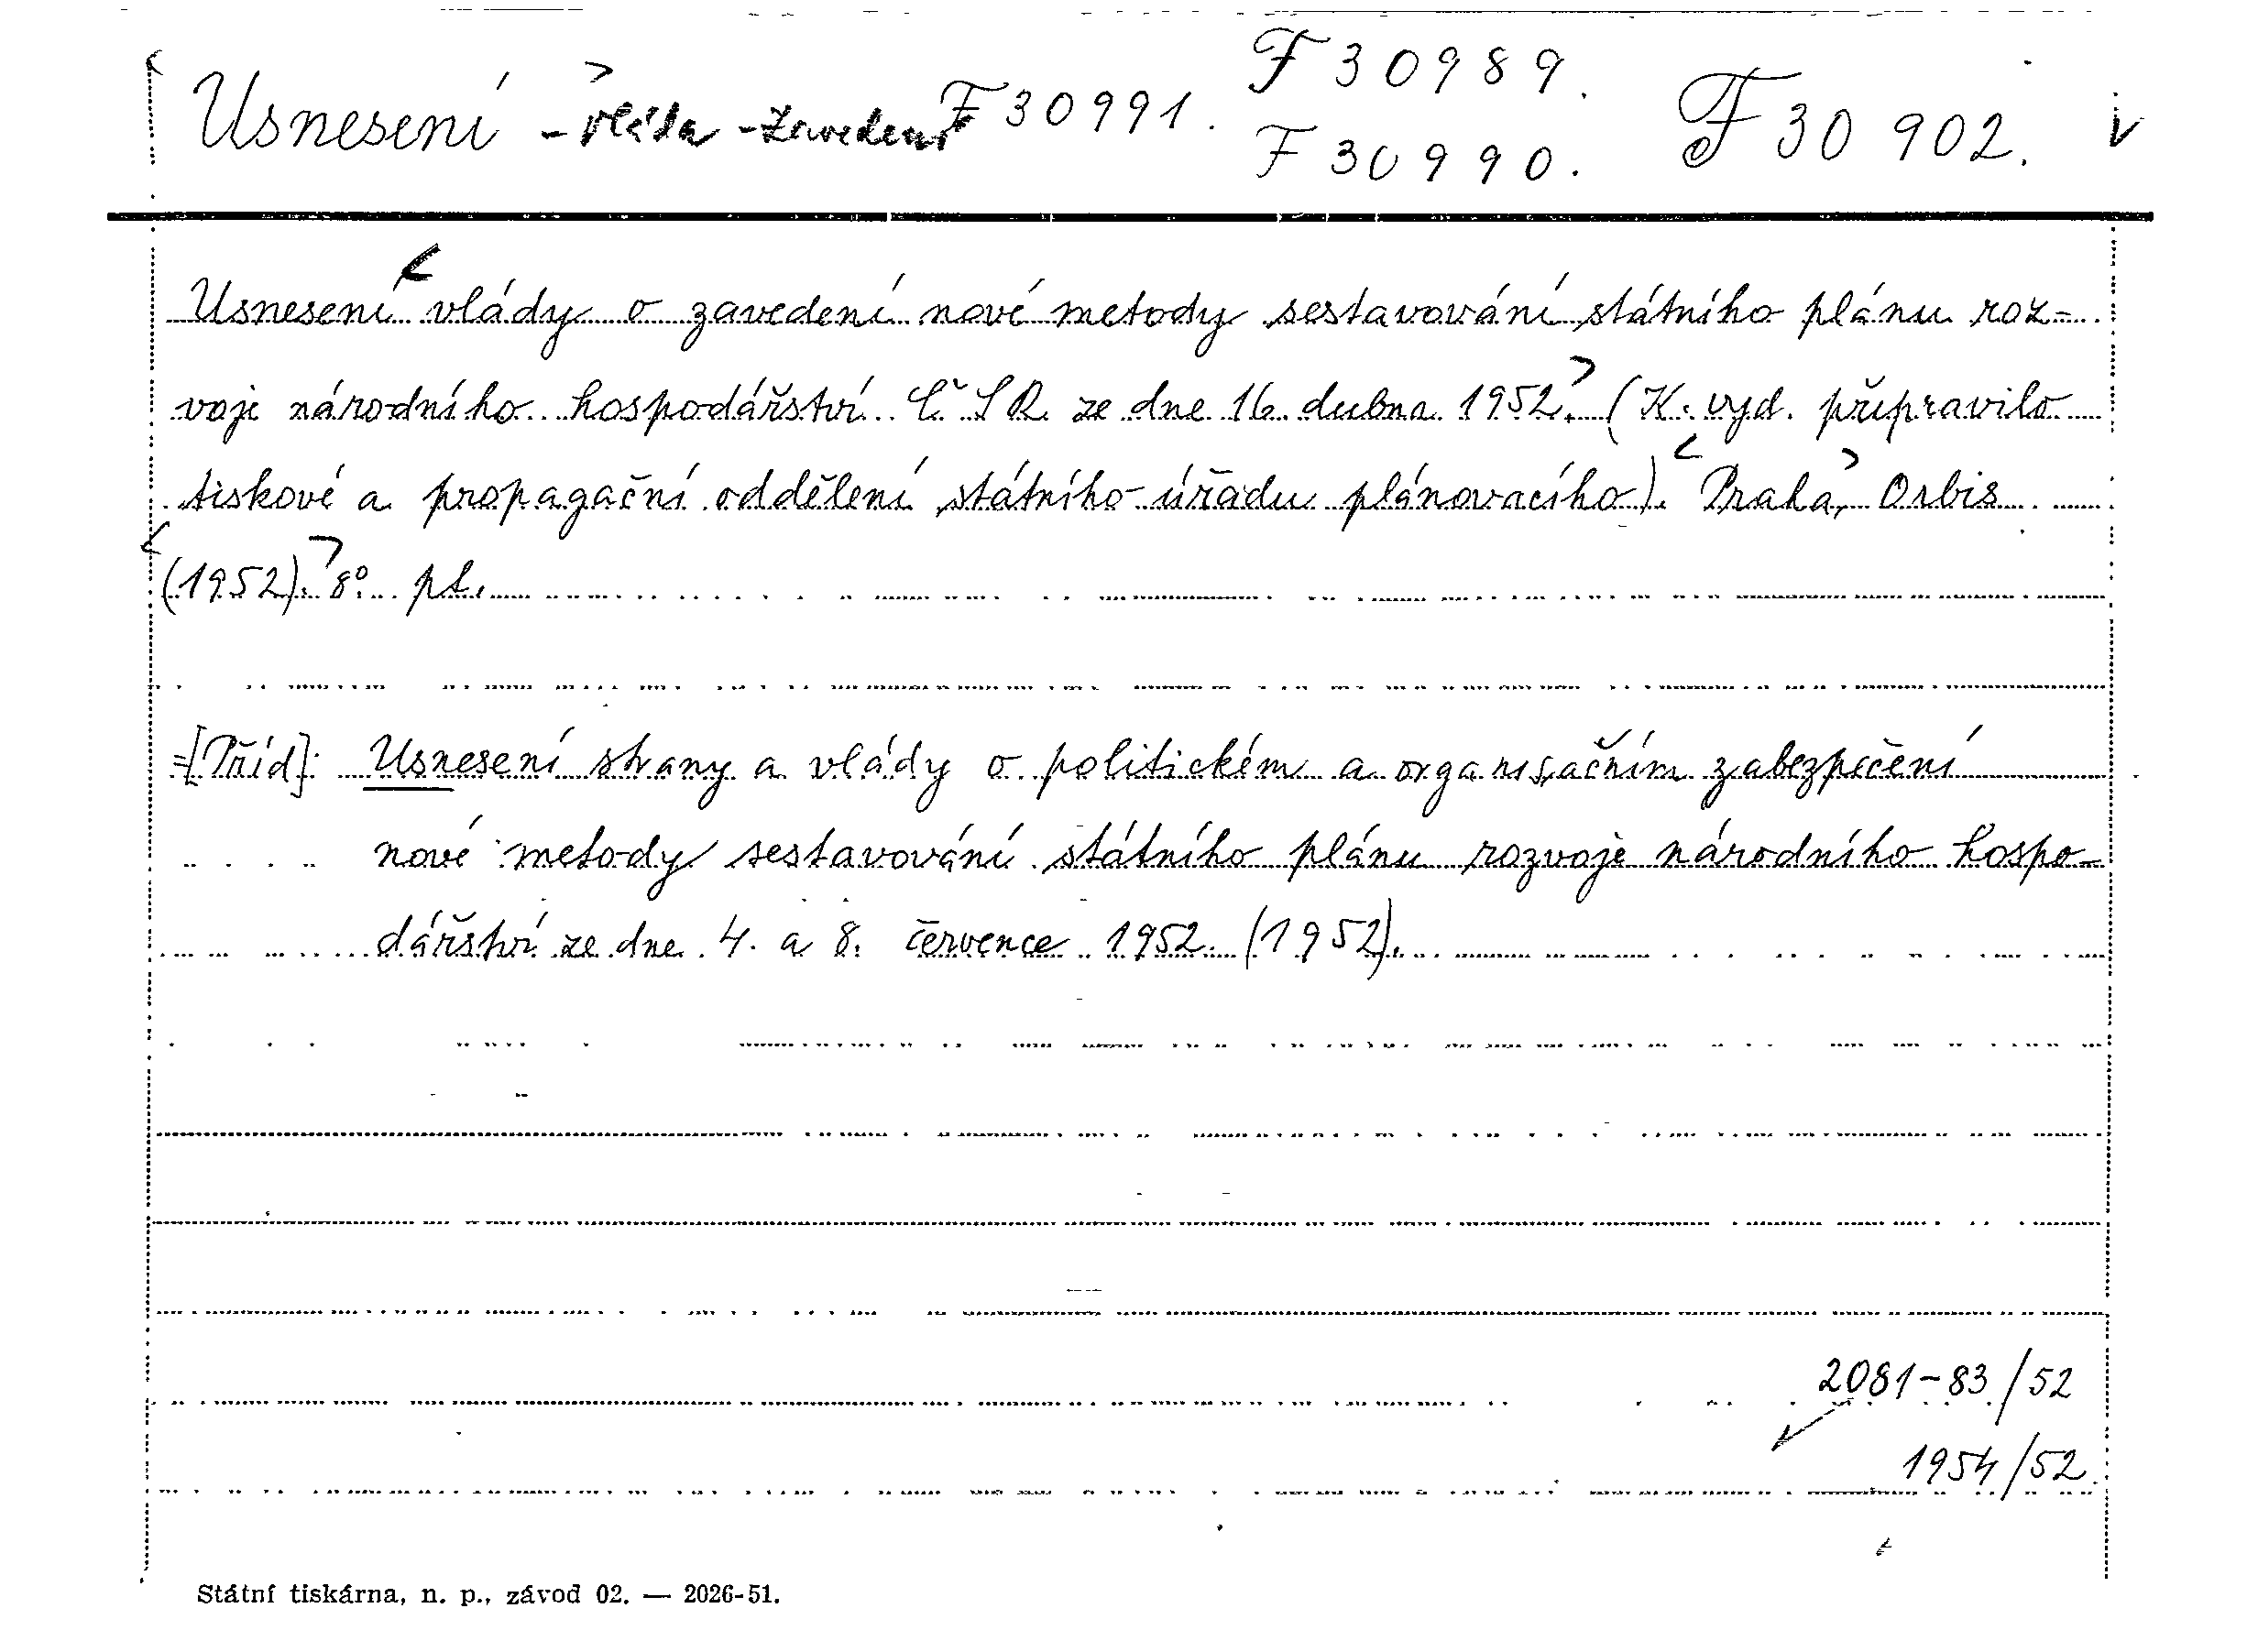 Usnesení - vláda - zavedení F 30991. F 30989. F 30990. F 30 902.
Usnesení vlády o zavedení nové metody sestavování státního plánu roz-
voje národního hospodářství ČSR ze dne 16. dubna 1952. (K. vyd. připravilo
tiskové a propagační oddělení státního úřadu plánovacího). Praha, Orbis
(1952). 8°. pl.
=[Příd]: Usnesení strany a vlády o politickém a organisačním zabezpečení
nové metody sestavování státního plánu rozvoje národního hospo-
dářství ze dne 4. a 8. července 1952. (1952).
2081-83/52
1954/52.
Státní tiskárna, n. p., závod 02. — 2026-51.